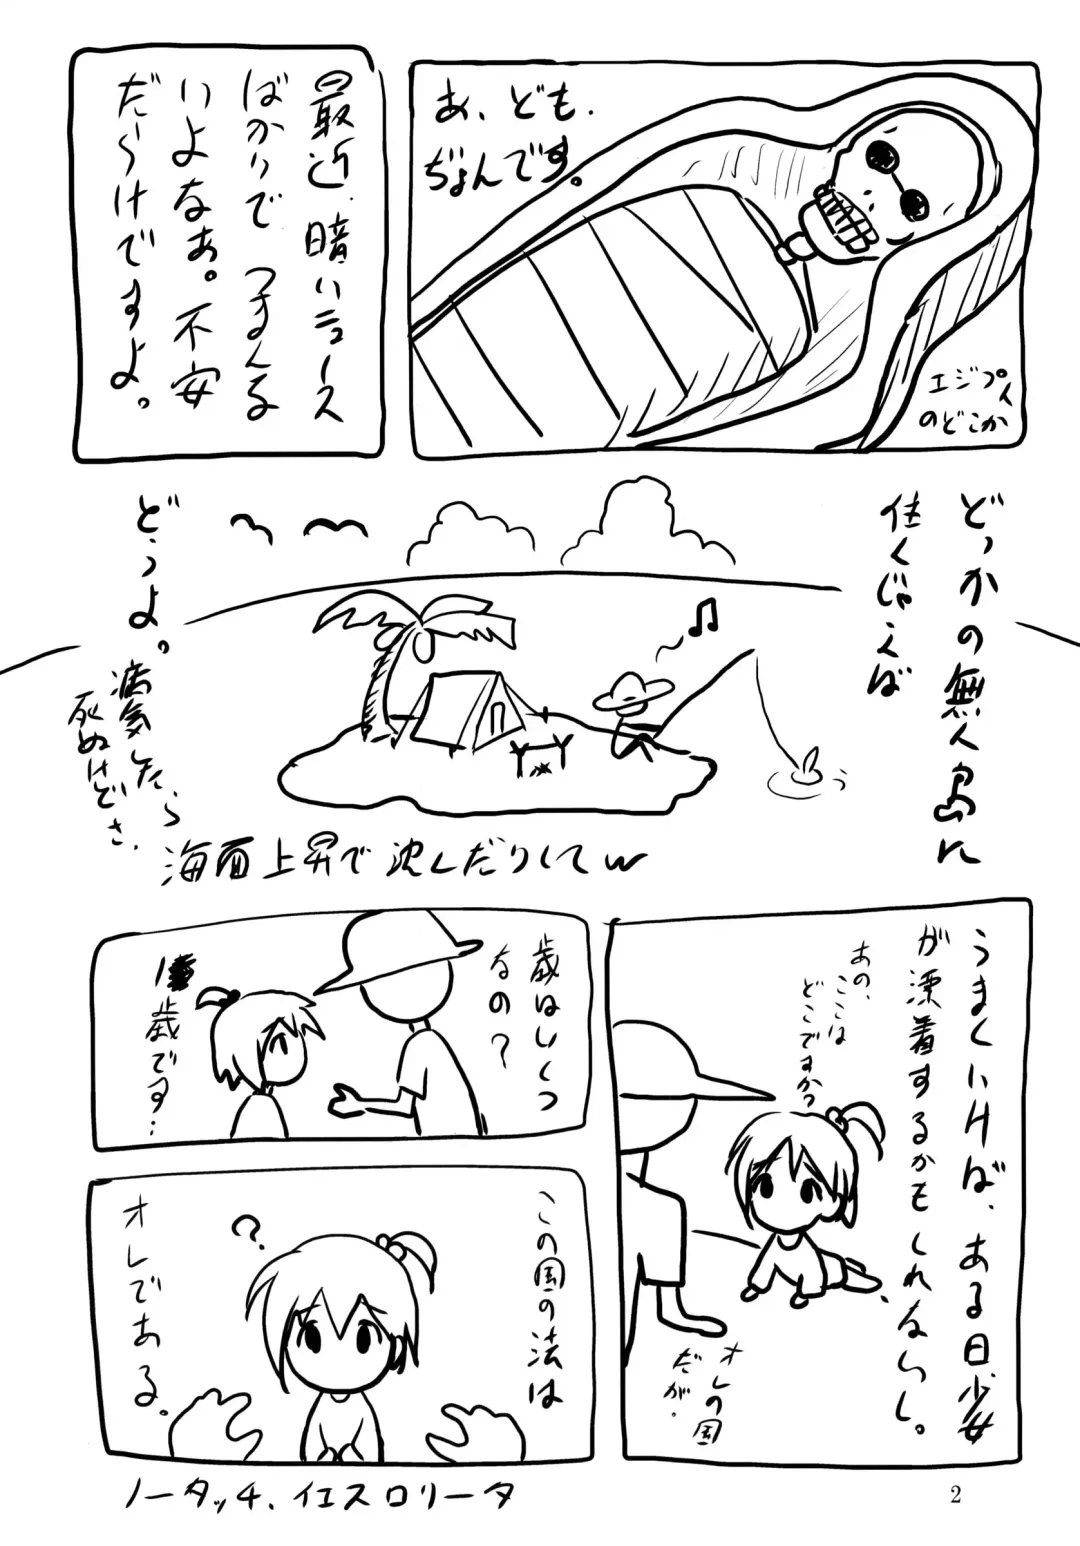 あ、ども.
ぢょんです。
エジプト
のどこか
最近、暗いニュース
ばかりで つまんな
いよなぁ。不安
だらけですよ。
どっかの無人島に
住くじゃんば
どうよ。
病気したら
死ぬけどさ.
海面上昇で沈んだりしてw
うまくいけば、ある日、少女
が漂着するかもしれないし。
あの、
ここは
どこですか?
オレの国
だが。
歳はいくつ
なの?
歳です…
この国の法は
オレである。
?
ノータッチ、イエスロリータ
2